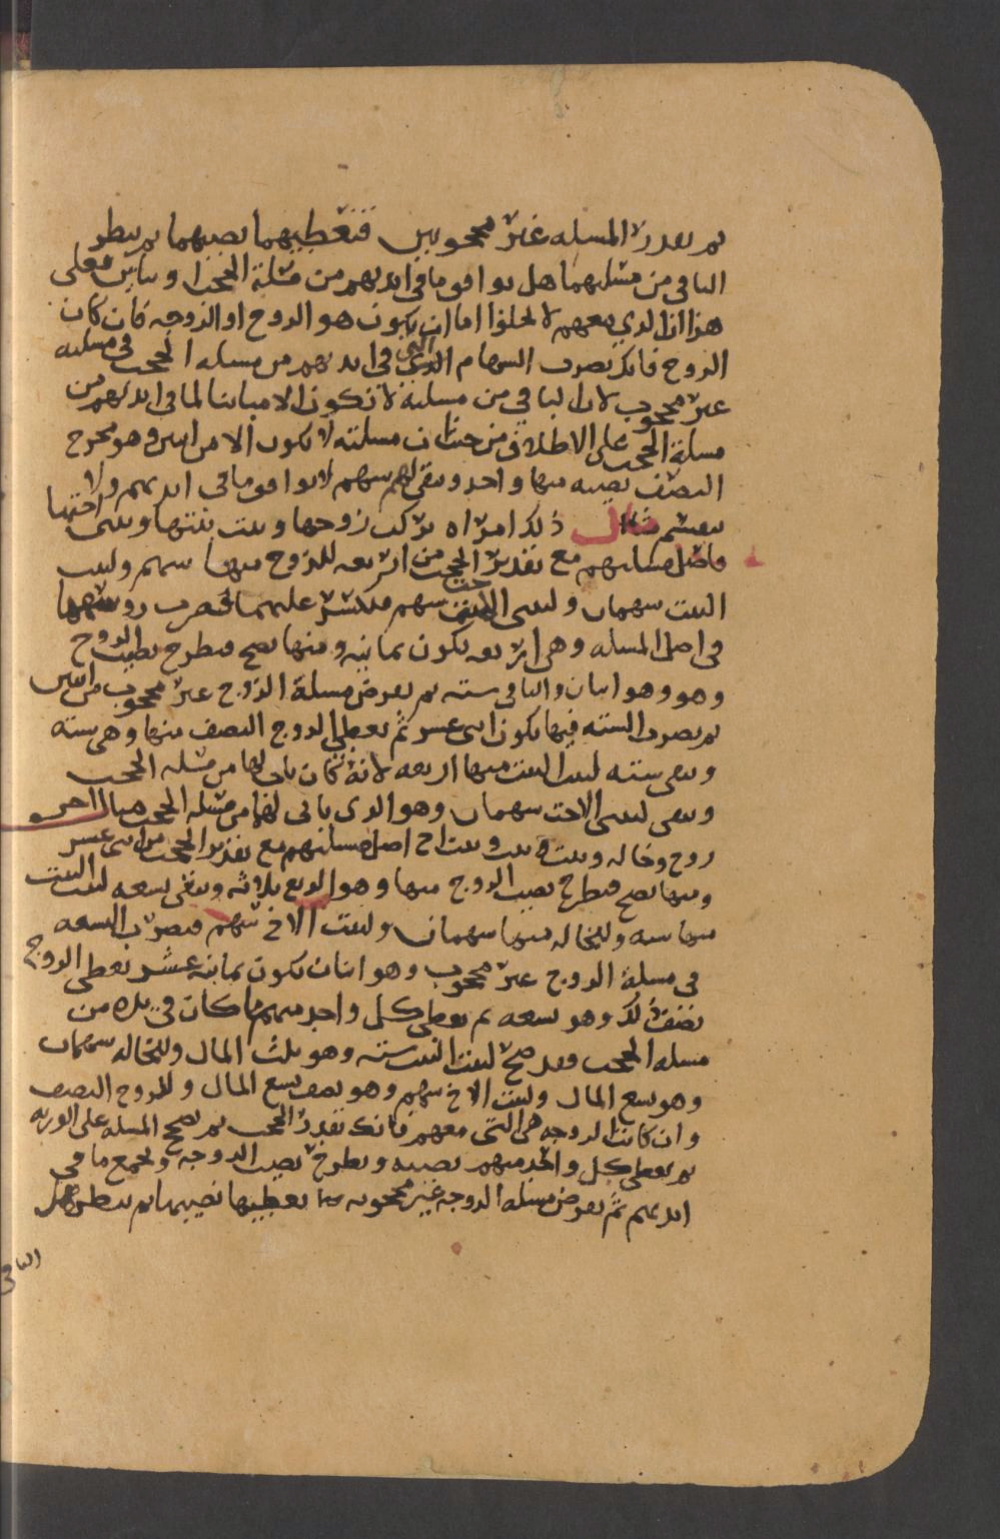 ثم تقدر المسله غير محجوبين فتعطيهما نصيبهما ثم ينظر
الباقي من مسلتهما هل يوافق ما في ايديهم من مسلة الحجب او يباين فعلى
هذا ان الذي معهم لا يخلوا اما ان يكون هو الزوج او الزوجه فان كان
الزوج فانك تضرب السهام التي في ايديهم من مسله الحجب في مسلته
غير محجوب لان الباقي من مسلته لا تكون الا مباينا لما في ايديهم من
مسلة الحجب على الاطلاق من حيث ان مسلته لا تكون الا من اثنين وهو مخرج
النصف نصيبه منها واحد وبقي لهم سهم لا يوافق ما في ايديهم ولا
ينقسم مثال ذلك امراه تركت زوجها وبنت بنتها وبنتي اختها
فاصل مسلتهم مع تقدير الحجب من اربعه للزوج منها سهم ولبنت
البنت سهمان ولبنتي الاخت سهم منكسر عليهما فتضرب روسهما
في اصل المسله وهي اربعه يكون ثمانيه ومنها تصح فتطرح نصيب الزوج
وهو اثنان والباقي سته ثم تعرض مسلة الزوج غير محجوب من اثنين
ثم تضرب السته فيها يكون اثنى عشر ثم تعطي الزوج النصف منها وهي سته
وتبقى سته لبنت البنت منها اربعه لانه كان باقي لها من مسلة الحجب
وتبقى لبنتي الاخت سهمان وهو الذي باقي لهما من مسلة الحجب مثال اخر
زوج وخاله وبنت بنت وبنت اخ اصل مسلتهم مع تقدير الحجب من اثنى عشر
ومنها تصح فتطرح نصيب الزوج منها وهو الربع ثلاثه وتبقى تسعه لبنت البنت
منها سته وللخاله منها سهمان ولبنت الاخ سهم فتضرب التسعه
في مسلة الزوج غير محجوب وهو اثنان تكون ثمانيه عشر تعطي الزوج
نصف ذلك وهو تسعه ثم تعطي كل واحد منهم ما كان في يده من
مسله الحجب وقد صح لبنت البنت سته وهو ثلث المال وللخاله سهمان
وهو تسع المال ولبنت الاخ سهم وهو نصف تسع المال وللزوج النصف
وان كانت الزوجه هي التي معهم فانك تقدر الحجب ثم تصحح المسله على الورثه
ثم تعطي كل واحد منهم نصيبه وتطرح نصيب الزوجه وتجمع ما في
ايديهم ثم تعرض مسلة الزوجه غير محجوبه تعطيها نصيبها ثم تنظر هل
الباقي